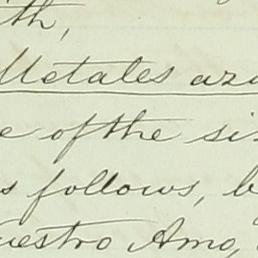 ith,
Metates az
e of the si
s follows, b
uestro Amo,